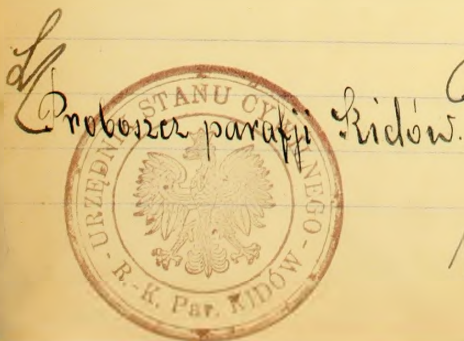 Proboszcz parafji Kidów.
URZĘDNIK STANU CYWILNEGO
- R.-K. Par. KIDÓW -